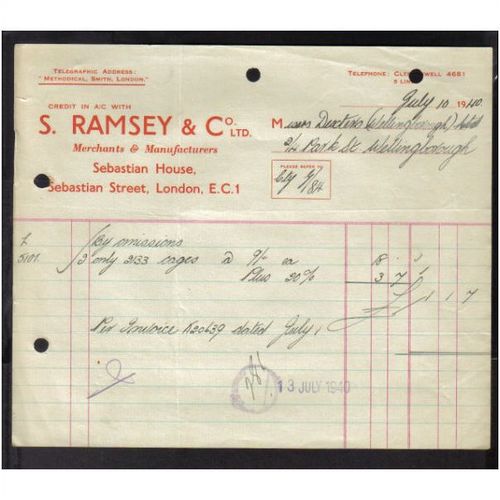 TELEGRAPHIC ADDRESS:
"METHODICAL, SMITH, LONDON."
TELEPHONE: CLERKENWELL 4681
5 LINES
CREDIT IN A/C WITH
July 10 1940
S. RAMSEY & Co. LTD.
Messrs Dexters (Wellingborough) Ltd
Merchants & Manufacturers
Park St. Wellingborough
Sebastian House,
Sebastian Street, London, E.C.1
PLEASE REFER TO
By omissions
3 only 3133 cages @ 9/- ea
Plus 20%
3 7
1 1 7
Per Invoice A20639 dated July 1
13 JULY 1940